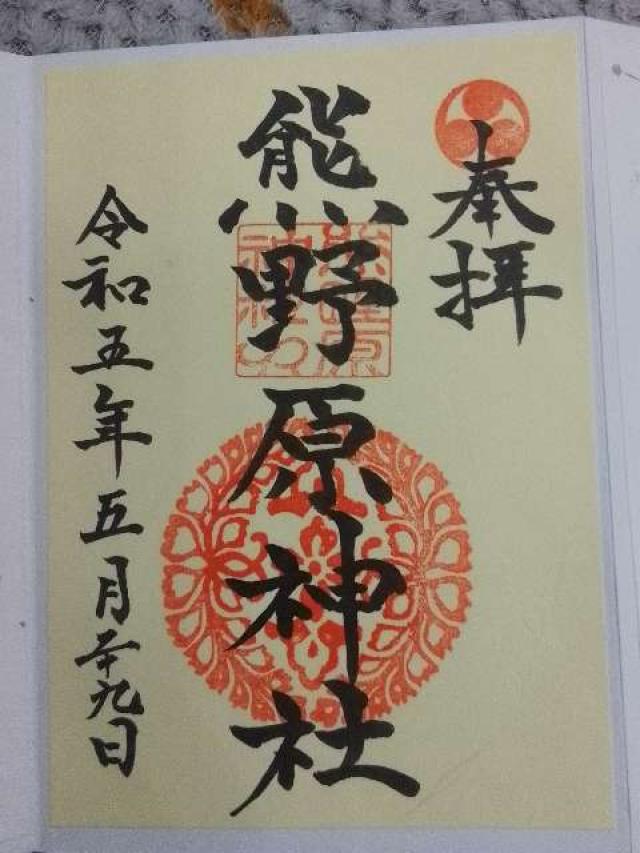 奉拝
熊野原神社
令和五年五月二十九日